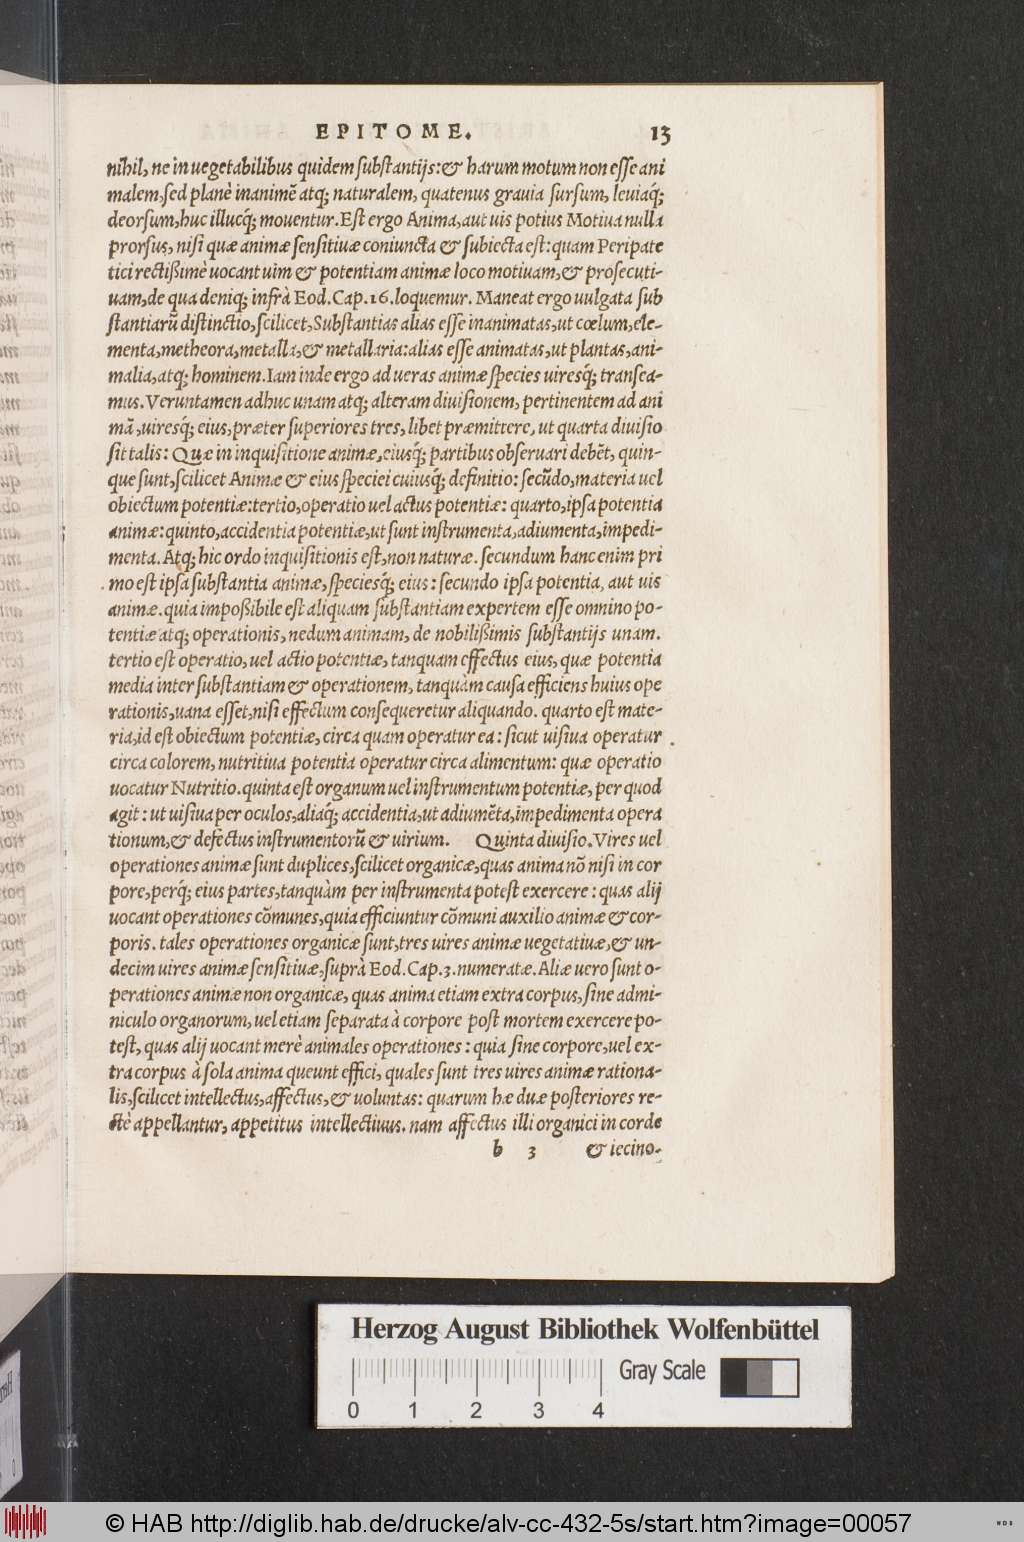 EPITOME. 13
nihil, ne in uegetabilibus quidem substantijs: & harum motum non esse ani
malem, sed planè inanimẽ atq; naturalem, quatenus grauia sursum, leuiaq́;
deorsum, huc illucq́; mouentur. Est ergo Anima, aut uis potius Motiua nulla
prorsus, nisi quæ animæ sensitiuæ coniuncta & subiecta est: quam Peripate
tici rectißimè uocant uim & potentiam animæ loco motiuam, & prosecuti-
uam, de qua deniq; infrà Eod. Cap. 16. loquemur. Maneat ergo uulgata sub
stantiarũ distinctio, scilicet, Substantias alias esse inanimatas, ut cœlum, ele-
menta, metheora, metalla, & metallaria: alias esse animatas, ut plantas, ani-
malia, atq; hominem. Iam inde ergo ad ueras animæ species uiresq́; transea-
mus. Veruntamen adhuc unam atq; alteram diuisionem, pertinentem ad ani
mã, uiresq́; eius, præter superiores tres, libet præmittere, ut quarta diuisio
sit talis: Quæ in inquisitione animæ, eiusq́; partibus obseruari debẽt, quin-
que sunt, scilicet Animæ & eius speciei cuiusq́; definitio: secũdo, materia uel
obiectum potentiæ: tertio, operatio uel actus potentiæ: quarto, ipsa potentia
animæ: quinto, accidentia potentiæ, ut sunt instrumenta, adiumenta, impedi-
menta. Atq; hic ordo inquisitionis est, non naturæ. secundum hanc enim pri
mo est ipsa substantia animæ, speciesq́; eius: secundo ipsa potentia, aut uis
animæ. quia impoßibile est aliquam substantiam expertem esse omnino po-
tentiæ atq; operationis, nedum animam, de nobilißimis substantijs unam.
tertio est operatio, uel actio potentiæ, tanquam effectus eius, quæ potentia
media inter substantiam & operationem, tanquàm causa efficiens huius ope
rationis, uana esset, nisi effectum consequeretur aliquando. quarto est mate-
ria, id est obiectum potentiæ, circa quam operatur ea: sicut uisiua operatur
circa colorem, nutritiua potentia operatur circa alimentum: quæ operatio
uocatur Nutritio. quinta est organum uel instrumentum potentiæ, per quod
agit: ut uisiua per oculos, aliaq́; accidentia, ut adiumẽta, impedimenta opera
tionum, & defectus instrumentorũ & uirium. Quinta diuisio. Vires uel
operationes animæ sunt duplices, scilicet organicæ, quas anima nõ nisi in cor
pore, perq́; eius partes, tanquàm per instrumenta potest exercere: quas alij
uocant operationes cõmunes, quia efficiuntur cõmuni auxilio animæ & cor-
poris. tales operationes organicæ sunt, tres uires animæ uegetatiuæ, & un-
decim uires animæ sensitiuæ, suprà Eod. Cap. 3. numeratæ. Aliæ uero sunt o-
perationes animæ non organicæ, quas anima etiam extra corpus, sine admi-
niculo organorum, uel etiam separata à corpore post mortem exercere po-
test, quas alij uocant merè animales operationes: quia sine corpore, uel ex-
tra corpus à sola anima queunt effici, quales sunt tres uires animæ rationa-
lis, scilicet intellectus, affectus, & uoluntas: quarum hæ duæ posteriores re-
ctè appellantur, appetitus intellectiuus. nam affectus illi organici in corde
b 3 & iecino-
Herzog August Bibliothek Wolfenbüttel
Gray Scale
0 1 2 3 4
© HAB http://diglib.hab.de/drucke/alv-cc-432-5s/start.htm?image=00057